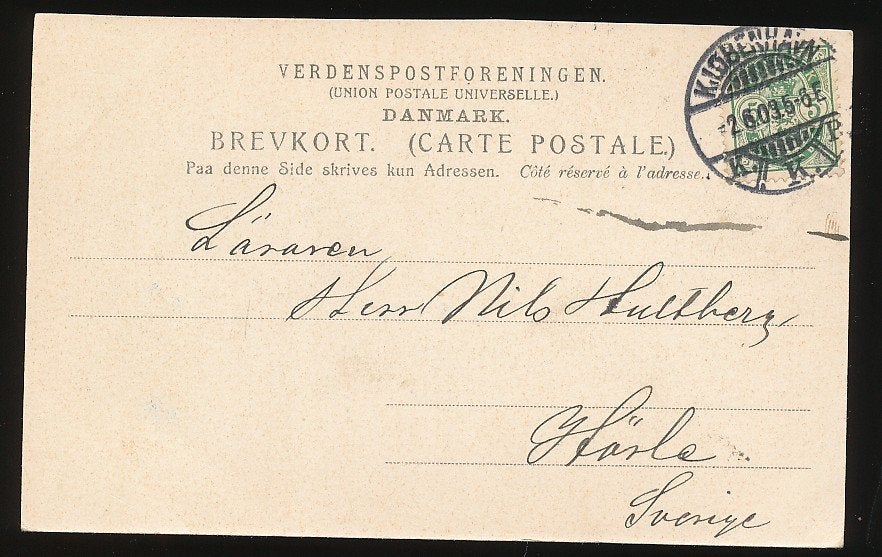 VERDENSPOSTFORENINGEN.
(UNION POSTALE UNIVERSELLE.)
DANMARK.
BREVKORT. (CARTE POSTALE.)
Paa denne Side skrives kun Adressen. Côté réservé à l'adresse.
KJØBENHAVN
2.6.03.5-6E
K. K. B.
5
Läraren
Herr Nils Hultberg
Hörle
Sverige